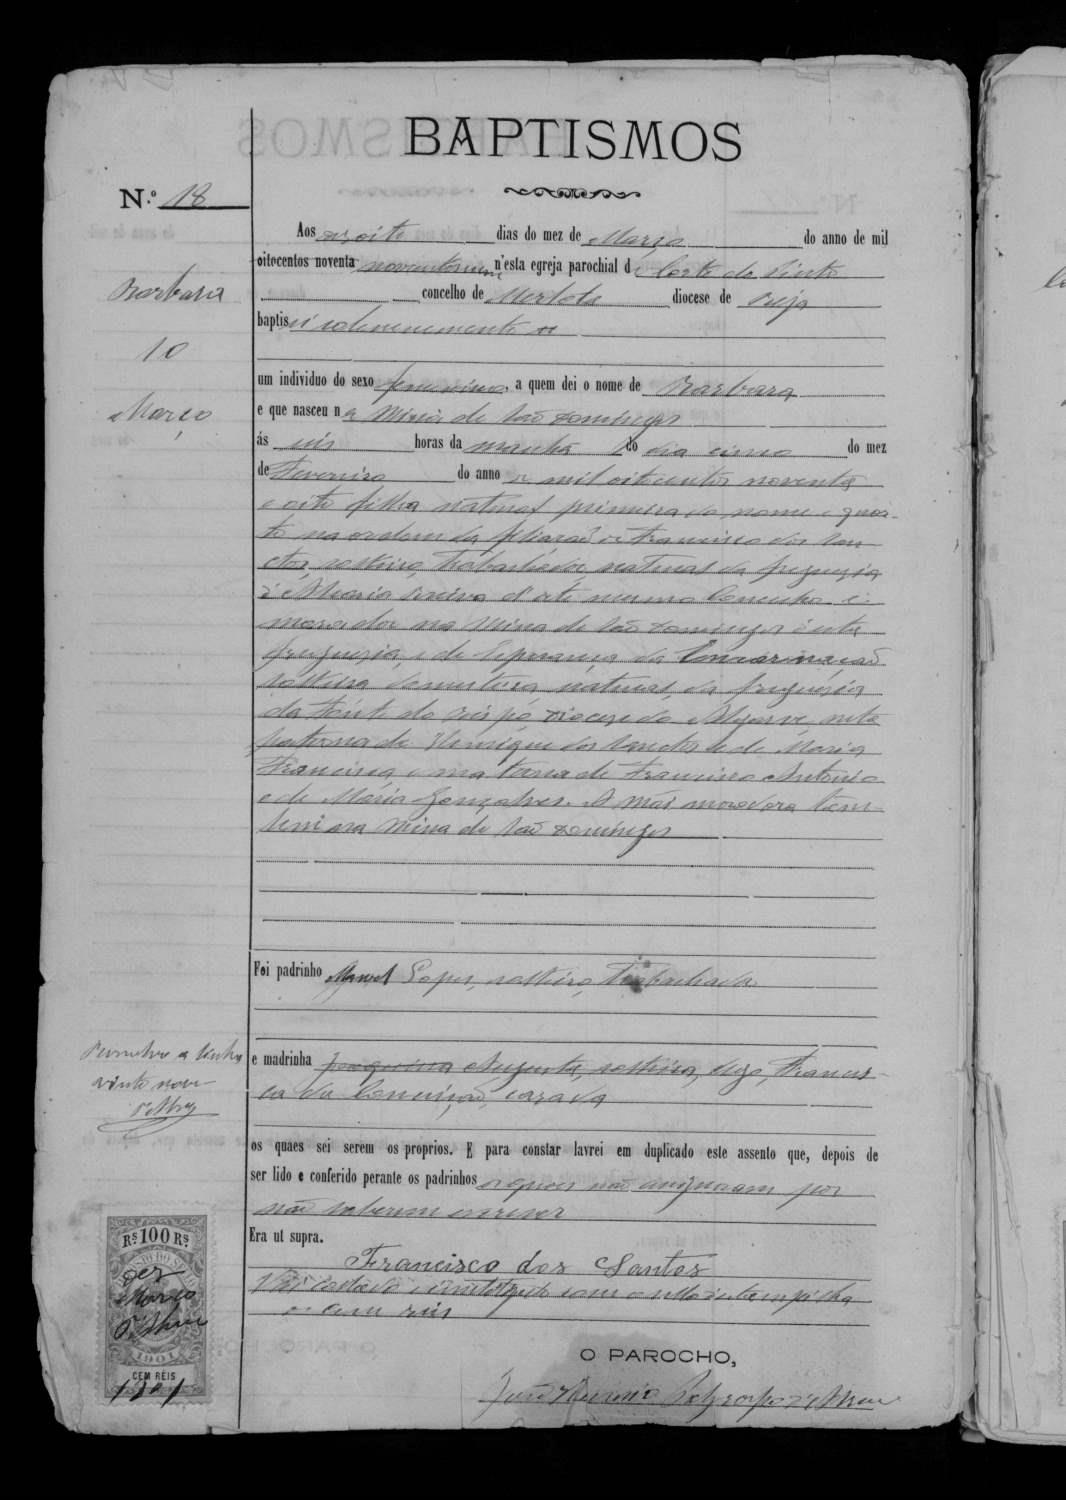 BAPTISMOS
N.º 18
Barbara
10
Março
Aos dezoito dias do mez de Março do anno de mil
oitocentos noventa n'esta egreja parochial de Corte do Pinto
concelho de Mertola diocese de Beja
baptisei solemnemente
um individuo do sexo femenino, a quem dei o nome de Barbara
e que nasceu na Mina de São Domingos
ás seis horas da manhã do dia cinco do mez
de Fevereiro do anno de mil oitocentos noventa
e oito filha natural primeira do nome e quar-
to na ordem da filiação de Francisco dos San
ctos, solteiro, trabalhador, natural da freguezia
d' d'este mesmo Concelho e
morador na Mina de São Domingos d'esta
freguezia, e de Esperança da Encarnação
solteira, natural da freguesia
da do Bispo Diocese do Algarve, neta
paterna de Henrique dos Sanctos e de Maria
Francisca e materna de Francisco Antonio
e de Maria Gonçalves. A mãi moradora tam-
bem na Mina de São Domingos
Foi padrinho Manoel Lopes, solteiro, trabalhador
e madrinha Joaquina Augusta, solteira, digo, Francis-
ca da Conceição, casada
os quaes sei serem os proprios. E para constar lavrei em duplicado este assento que, depois de
ser lido e conferido perante os padrinhos os quaes não assignaram por
não saberem escrever
Era ut supra.
Francisco dos Santos
Vai collado e com o sello da estampilha
de cem reis
O PAROCHO,
vinte nove
RS. 100 RS.
dez
Março
1901
CEM RÉIS
1901